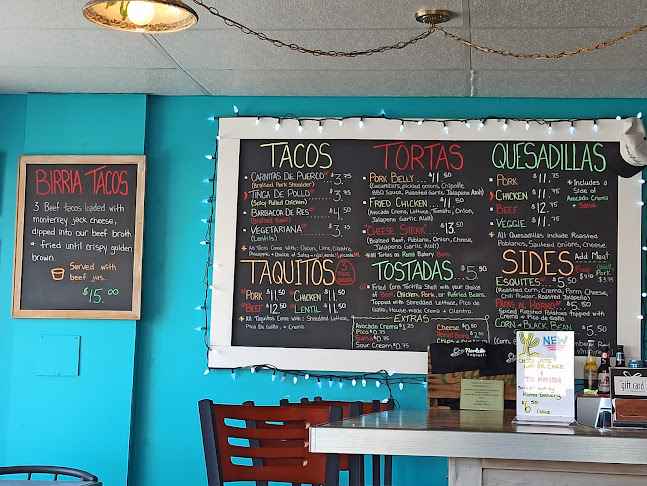 BIRRIA TACOS
3 Beef tacos loaded with
monterrey jack cheese,
dipped into our beef broth
& fried until crispy golden
brown.
Served with
beef jus.
$15.00
TACOS
• CARNITAS DE PUERCO $3.75
(Braised Pork Shoulder)
TINGA DE POLLO $3.75
(Spicy Pulled Chicken)
• BARBACOA DE RES $4.50
(Braised Beef)
• VEGETARIANA $3.75
(Lentils)
TAQUITOS
PORK $11.50 CHICKEN $11.50
BEEF $12.50 LENTIL $11.50
+ All Taquitos Come With: Shredded Lettuce,
Pico De Gallo, + Crema
TORTAS
PORK BELLY... $11.50
(Cucumbers, pickled onions, Chipotle
BBQ Sauce, Roasted Garlic Jalapeño Aioli)
FRIED CHICKEN... $11.50
(Avocado Crema, Lettuce, Tomato, Onion,
Jalapeno Garlic Aioli)
CHEESE STEAK $13.50
(Braised Beef, Poblano, Onion, Cheese,
Jalapeño Garlic Aioli)
TOSTADAS... 5.50
Fried Corn Tortilla Shell with your choice
of Beef, Chicken, Pork, or Refried Beans.
Topped with Shredded Lettuce, Pico de
Gallo, House made Crema + Cilantro.
EXTRAS
Avocado Crema $1.25
Pico
Salsa
Sour Cream
Cheese
Refried Beans
QUESADILLAS
• PORK $11.75
CHICKEN $11.75
• BEEF $12.75
• VEGGIE $11.75
+ Includes a
Side of
Avocado Crema
+ Salsa
+ All Quesadillas Include Roasted
Poblanos, Sauteed Onions, Cheese.
SIDES
Add Meat
Beef
Pork
ESQUITES $5.50
(Roasted Corn, Crema, Farm Cheese,
Chili Powder, Roasted Jalapeño)
PAPAS AL HORNO $5.50
Spiced Roasted Potatoes Topped with
Crema + Pico de Gallo.
CORN + BLACK BEAN
$5.50
NEW
gift card